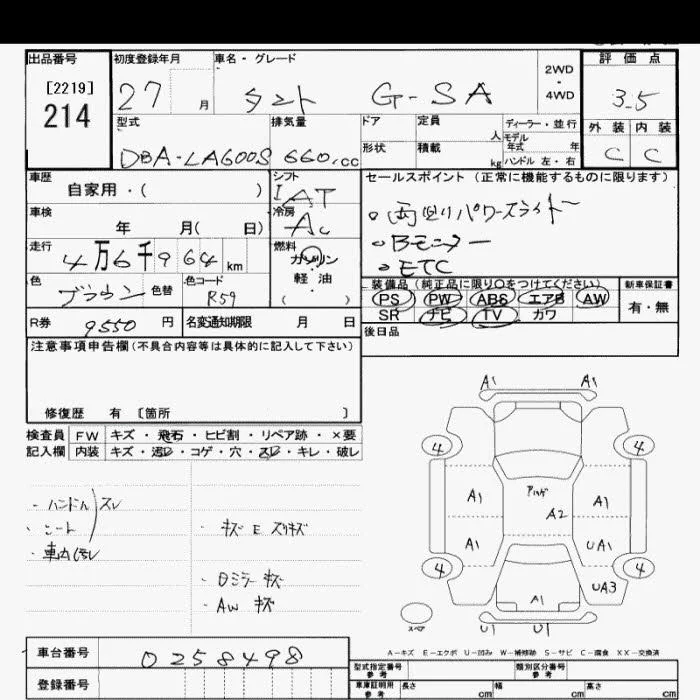 出品番号 初度登録年月 車名・グレード 評価点
[2219] 27 月 タント G-SA 2WD・4WD 3.5
214
型式 排気量 ドア 定員 人 ディーラー・並行 外装 内装
DBA-LA600S 660.cc 形状 積載 kg モデル年式 年 ハンドル 左・右 C C
車歴 シフト セールスポイント (正常に機能するものに限ります)
自家用・( ) IAT 。両側パワースライド
車検 冷房
年 月( 日) AC 。Bモニター
走行 燃料
4万6千964km ガソリン・軽油 ( ) 。ETC
色 ブラウン 色替 色コード R59 装備品 (純正品に限り○をつけてください) 新車保証書
PS PW ABS エアB AW 有・無
SR ナビ TV カワ
R券 9550 円 名変通知期限 月 日 後日品
注意事項申告欄 (不具合内容等は具体的に記入して下さい)
修復歴 有 〔箇所 〕
A1 A1
検査員 FW キズ・飛石・ヒビ割・リペア跡・×要
記入欄 内装 キズ・汚レ・コゲ・穴・スレ・キレ・破レ
4 4
・ハンドル スレ
・シート
・車内汚レ
・キズ E スリキズ
・Dミラー キズ
・AW キズ
A1 A2 A1
A1 UA1
4 4
A1 UA3
スペア U1 U1
A−キズ E−エクボ U−凹み W−補修跡 S−サビ C−腐食 XX−交換済
車台番号 0258498 型式指定番号 参考 類別区分番号 参考
登録番号 車庫証明用 参考 長さ cm 幅 cm 高さ cm